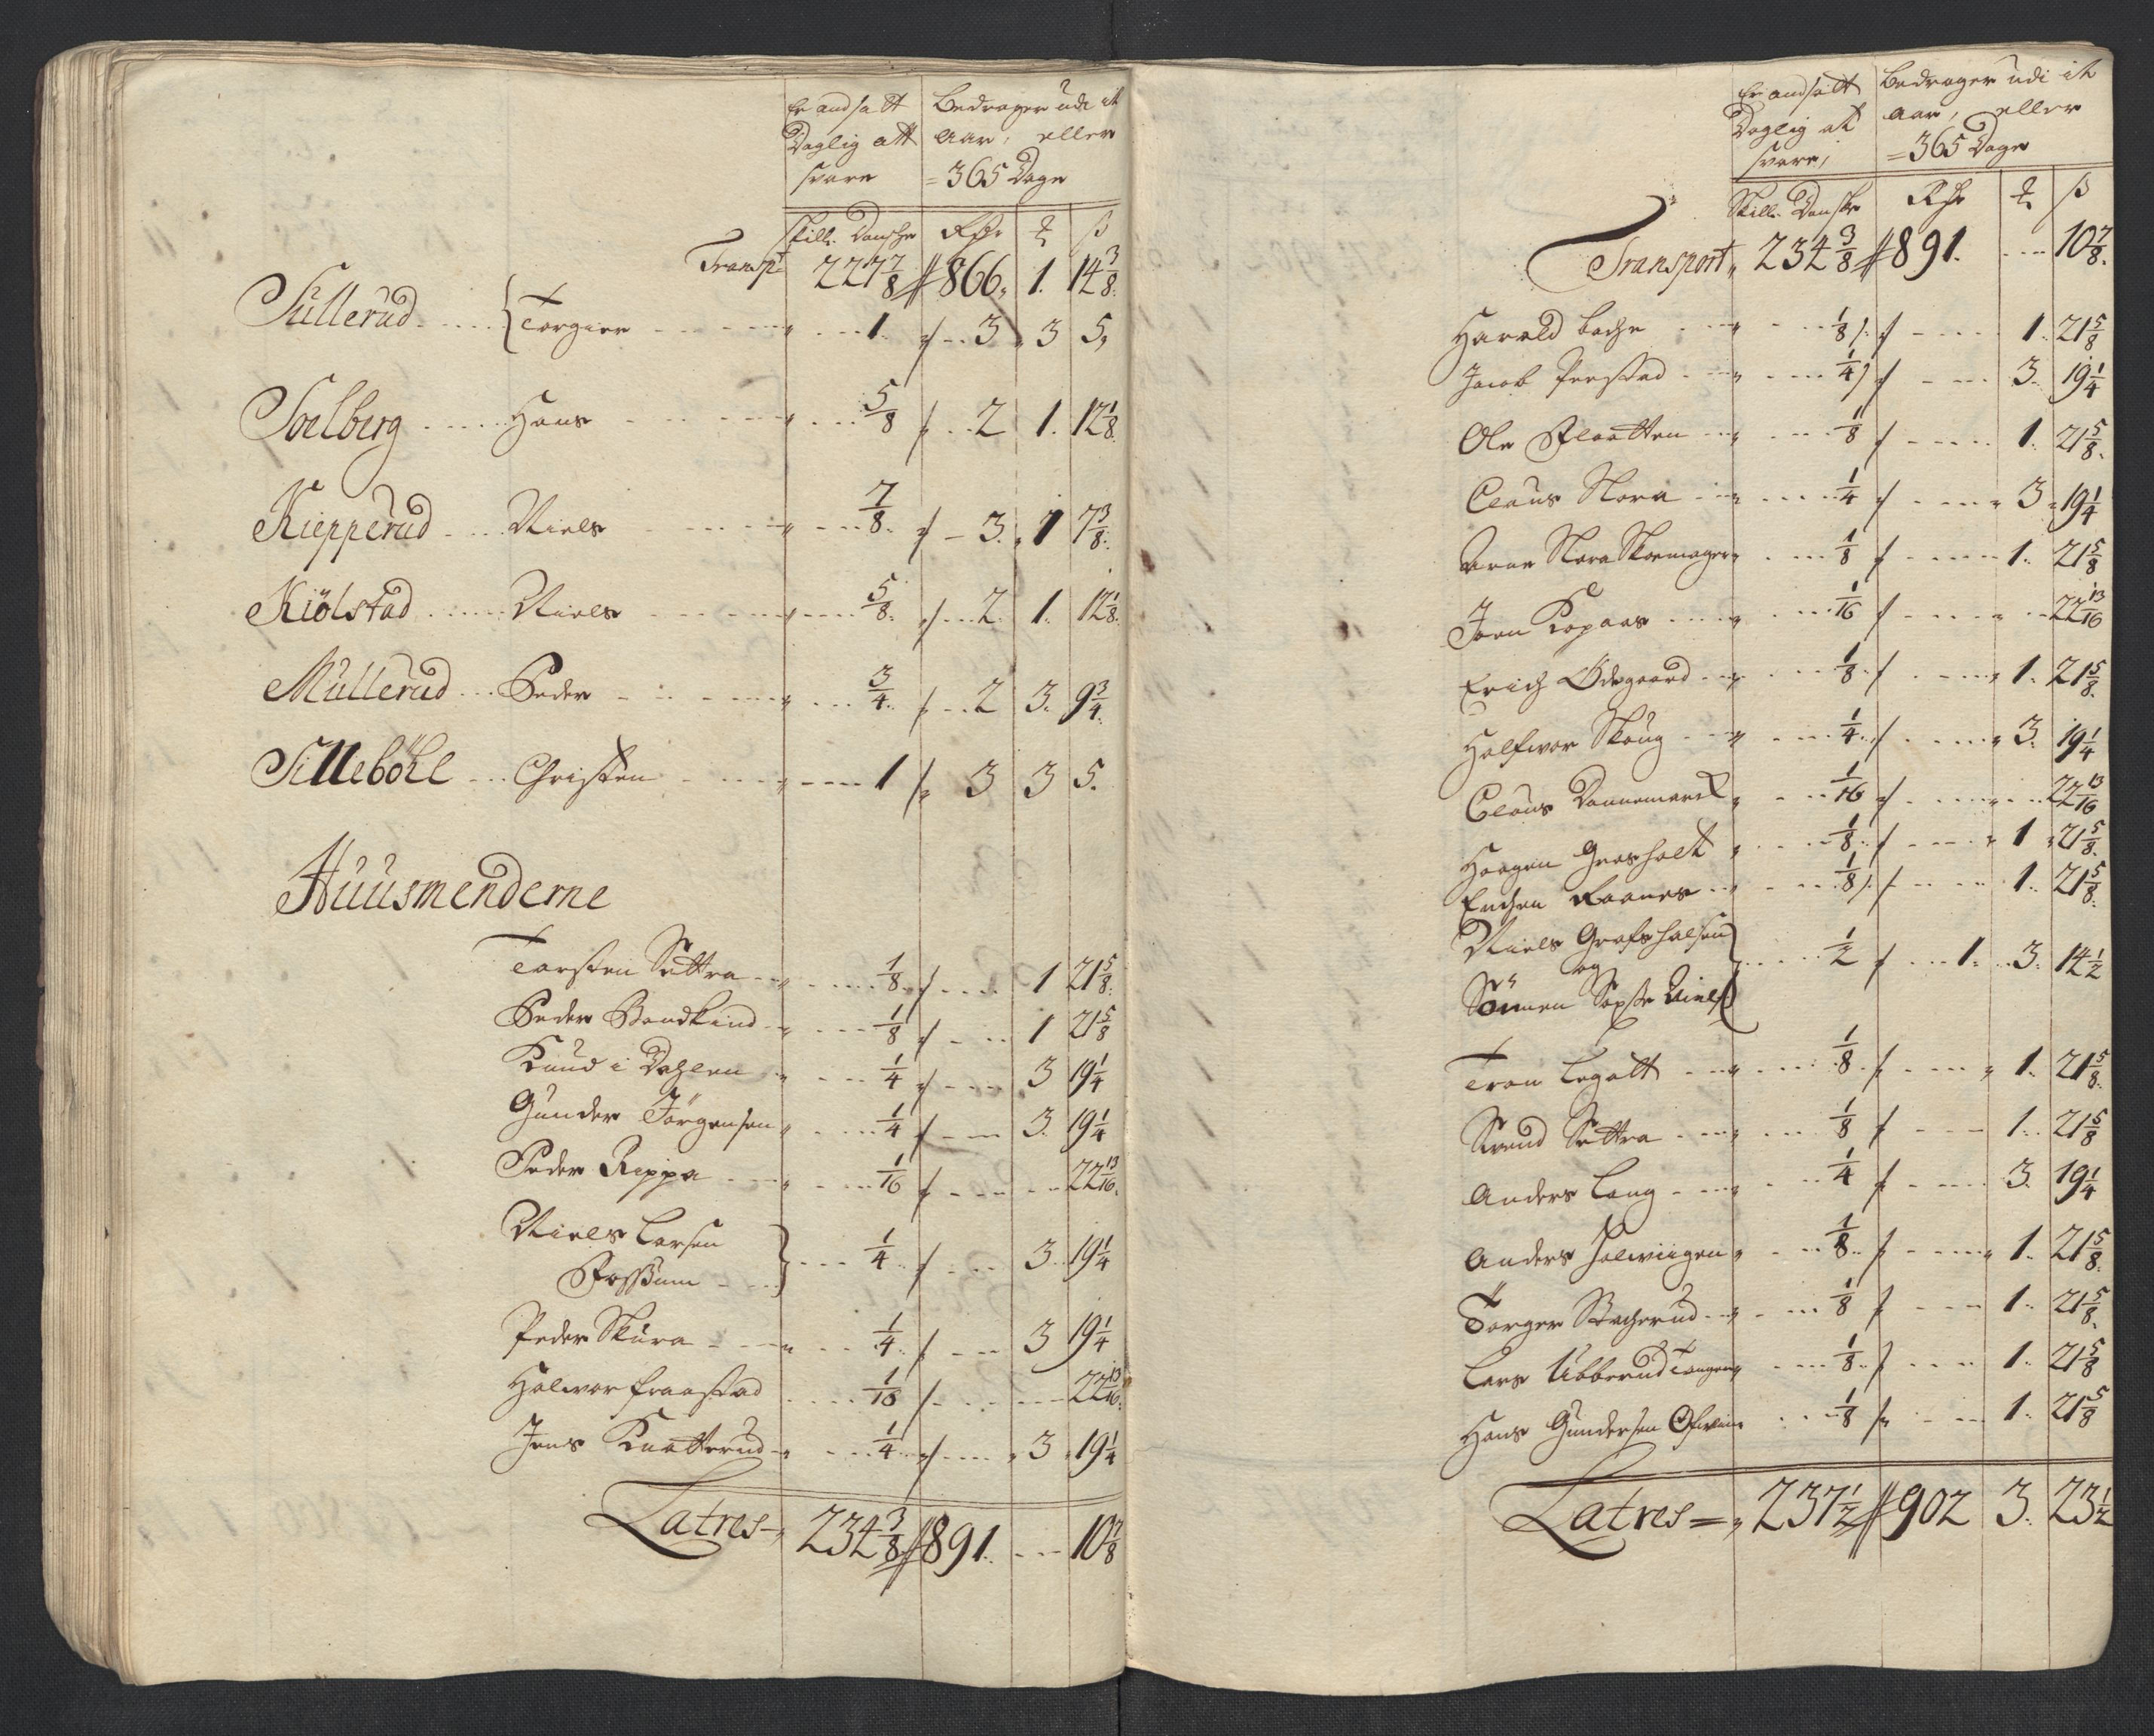 Er andsatt Bedrager udi it
Daglig att Aar, eller
svare = 365 Dage
Skill. Danske Rdr ß
Transpt 227 7/8 866. 1. 14 3/8
Süllerud Torgier 1. 3 3 5.
Soelberg Hans 5/8 2 1. 12 1/8
Kiepperud Niels 7/8 3. 1 7 3/8
Kiölstad Niels 5/8 2. 1. 12 1/8
Müllerud Peder 3/4 2 3. 9 3/4
Silleböhl Christen 1 3 3 5.
Huusmenderne
Torsten Sættra 1/8 1 21 5/8
Peder Bondkind 1/8 1 21 5/8
Knud i Dahlen 1/4 3 19 1/4
Gunder Jörgensen 1/4 3. 19 1/4
Peder Rippa 1/16 22 13/16
Niels Larsen
Fossum 1/4 3 19 1/4
Peder Skura 1/4 3 19 1/4
Halvor fraastad 1/16 22 13/16
Jens Knatterud 1/4 3 19 1/4
Latres 234 3/8 891. 10 7/8
Er andsatt Bedrager udi it
Daglig at Aar, eller
svare, = 365 Dage
Skill. Danske Rdr ß
Transport 234 3/8 891. 10 7/8
Harald bache 1/8 1. 21 5/8
Jacob 1/4 3. 19 1/4
Ole Flaatten 1/8 1. 21 5/8
Claus Nora 1/4 3 19 1/4
Arne Nora Skomager 1/8 1. 21 5/8
Joen Kopaas 1/16 22 13/16
Erich Ödegaard 1/8 1. 21 5/8
Halfwor Skoug 1/4 3. 19 1/4
Claus Dannemarck 1/16 22 13/16
Haagen Grasholt 1/8 1 21 5/8
Raanes 1/8 1. 21 5/8
Niels Grafshalsen
og 1/2 1. 3. 14 1/2
Sönnen
Tron Legaltt 1/8 1. 21 5/8
Svend Sættra 1/8 1. 21 5/8
Anders Lang 1/4 3. 19 1/4
Anders Halwiigen 1/8 1. 21 5/8
Torger Bacherud 1/8 1. 21 5/8
Lars Ubberud Tangen 1/8 1. 21 5/8
Hans Gundersen 1/8 1. 21 5/8
Latres = 237 1/2 902 3. 23 1/2